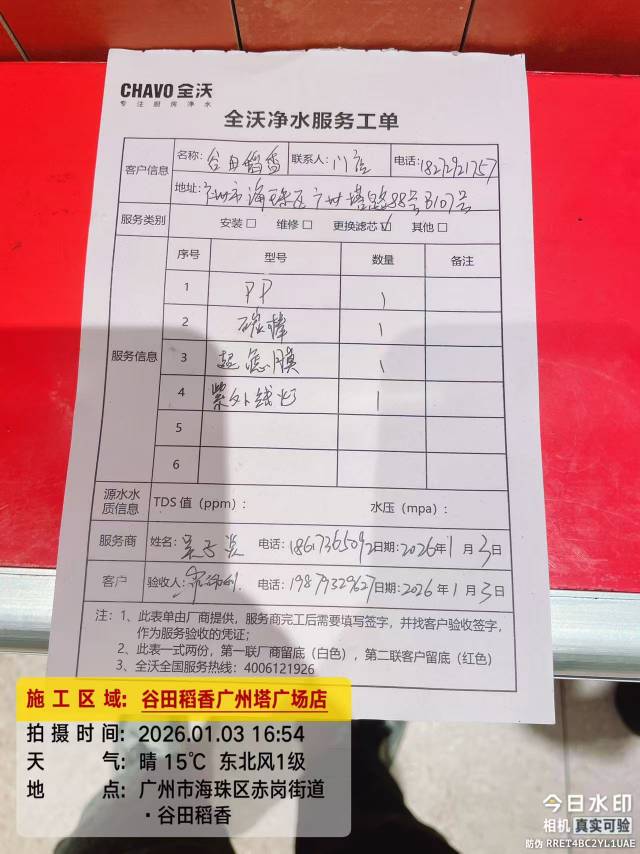 CHAVO 全沃
专注厨房净水
全沃净水服务工单
客户信息
名称: 谷田稻香 联系人: 门店 电话: 18272921757
地址: 广州市海珠区广州塔路88号B107号
服务类别 安装 □ 维修 □ 更换滤芯 ☑ 其他 □
服务信息
序号 型号 数量 备注
1 PP 1
2 碳棒 1
3 起滤膜 1
4 紫外线灯 1
5
6
源水水质信息 TDS 值（ppm）: 水压（mpa）:
服务商 姓名: 电话: 1867365092 日期: 2026年1月3日
客户 验收人: 电话: 19879329627 日期: 2026年1月3日
注: 1、此表单由厂商提供，服务商完工后需要填写签字，并找客户验收签字，
作为服务验收的凭证;
2、此表一式两份，第一联厂商留底（白色），第二联客户留底（红色）
3、全沃全国服务热线: 4006121926
施工区域: 谷田稻香广州塔广场店
拍摄时间: 2026.01.03 16:54
天气: 晴 15℃ 东北风1级
地点: 广州市海珠区赤岗街道
·谷田稻香
今日水印
相机 真实可验
防伪 RRET4BC2YL1UAE